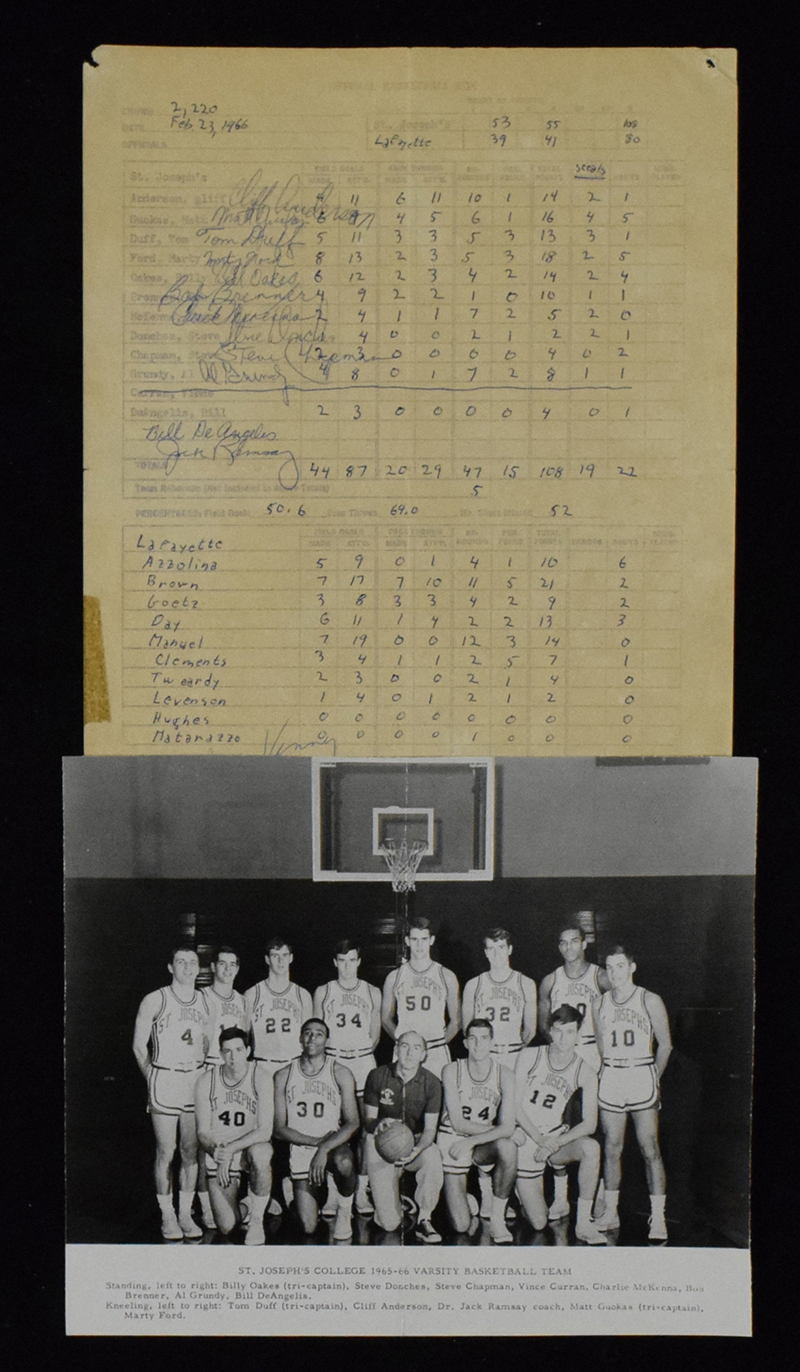 OFFICIAL BASKETBALL BOX
2,220
Feb 23, 1966
St. Joseph's 53 55 108
LaFayette 39 41 80
St. Joseph's FIELD GOALS MADE ATTD. steals
Anderson, Cliff Anderson 4 11 6 11 10 1 14 2 1
Guokas, Matt 6 4 5 6 1 16 4 5
Duff, Tom Tom Duff 5 11 3 3 5 3 13 3 1
Ford, Marty Marty Ford 8 13 2 3 5 3 18 2 5
Oakes, Billy Oakes 6 12 2 3 4 2 14 2 4
Bob Brenner 4 9 2 2 1 0 10 1 1
Chuck McKenna 2 4 1 1 7 2 5 2 0
Donches, Steve Steve Donches 1 4 0 0 2 1 2 2 1
Chapman, Steve Steve Chapman 2 3 0 0 0 0 4 0 2
Grundy, Al Al Grundy 4 8 0 1 7 2 8 1 1
Curran, Vince
DeAngelis, Bill 2 3 0 0 0 0 4 0 1
Bill DeAngelis
Jack Ramsay
TOTALS 44 87 20 29 47 15 108 19 22
5
PERCENTAGES: Field Goals 50.6 Free Throws 69.0 52
LaFayette FIELD GOALS MADE ATTD.
Azzolina 5 9 0 1 4 1 10 6
Brown 7 17 7 10 11 5 21 2
Goetz 3 8 3 3 4 2 9 2
Day 6 11 1 4 2 2 13 3
Manuel 7 19 0 0 12 3 14 0
Clements 3 4 1 1 2 5 7 1
Tweardy 2 3 0 0 2 1 4 0
Levenson 1 4 0 1 2 1 2 0
Hughes 0 0 0 0 0 0 0 0
Matarazzo 0 0 0 0 1 0 0 0
Vinny
ST JOSEPHS 4
22
34
50
32
10
40
30
24
12
ST. JOSEPH'S COLLEGE 1965-66 VARSITY BASKETBALL TEAM
Standing, left to right: Billy Oakes (tri-captain), Steve Donches, Steve Chapman, Vince Curran, Charlie McKenna, Bob
Brenner, Al Grundy, Bill DeAngelis.
Kneeling, left to right: Tom Duff (tri-captain), Cliff Anderson, Dr. Jack Ramsay coach, Matt Guokas (tri-captain),
Marty Ford.